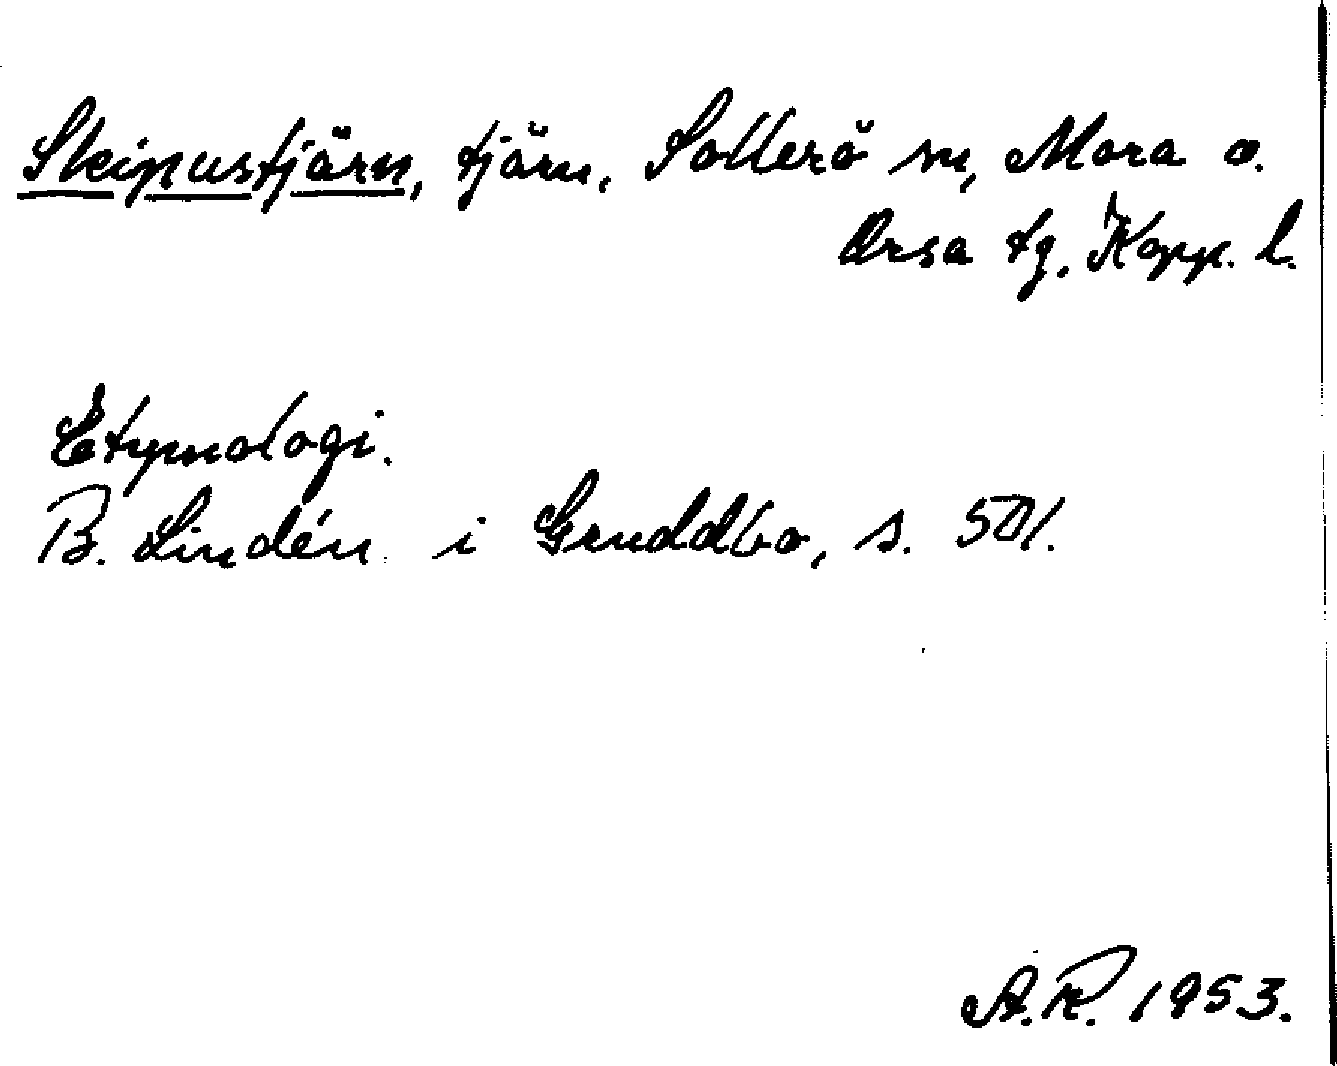 Skinpustjärn, tjärn, Sollerö sn, Mora o.
Orsa tg, Kopp. l.
Etymologi.
B. Lindén i Gruddbo, s. 501.
A.R. 1953.